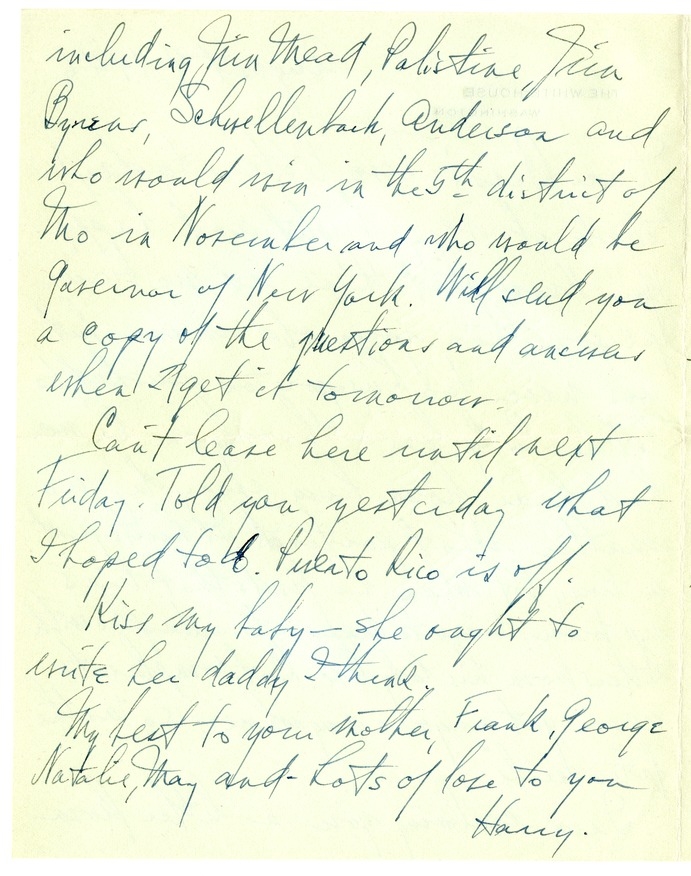 including Jim Mead, Palistine, Jim
Byrens, Schwellenbach, Anderson and
who would win in the 5th district of
Mo in November and who would be
Governor of New York. Will send you
a copy of the questions and answers
when I get it tomorrow.
Can't leave here until next
Friday. Told you yesterday what
I hoped to do. Puerto Rico is off.
Kiss my baby — she ought to
write her daddy I think.
My best to your mother, Frank, George
Natalie, May and - Lots of love to you
Harry.
THE WHITE HOUSE
WASHINGTON